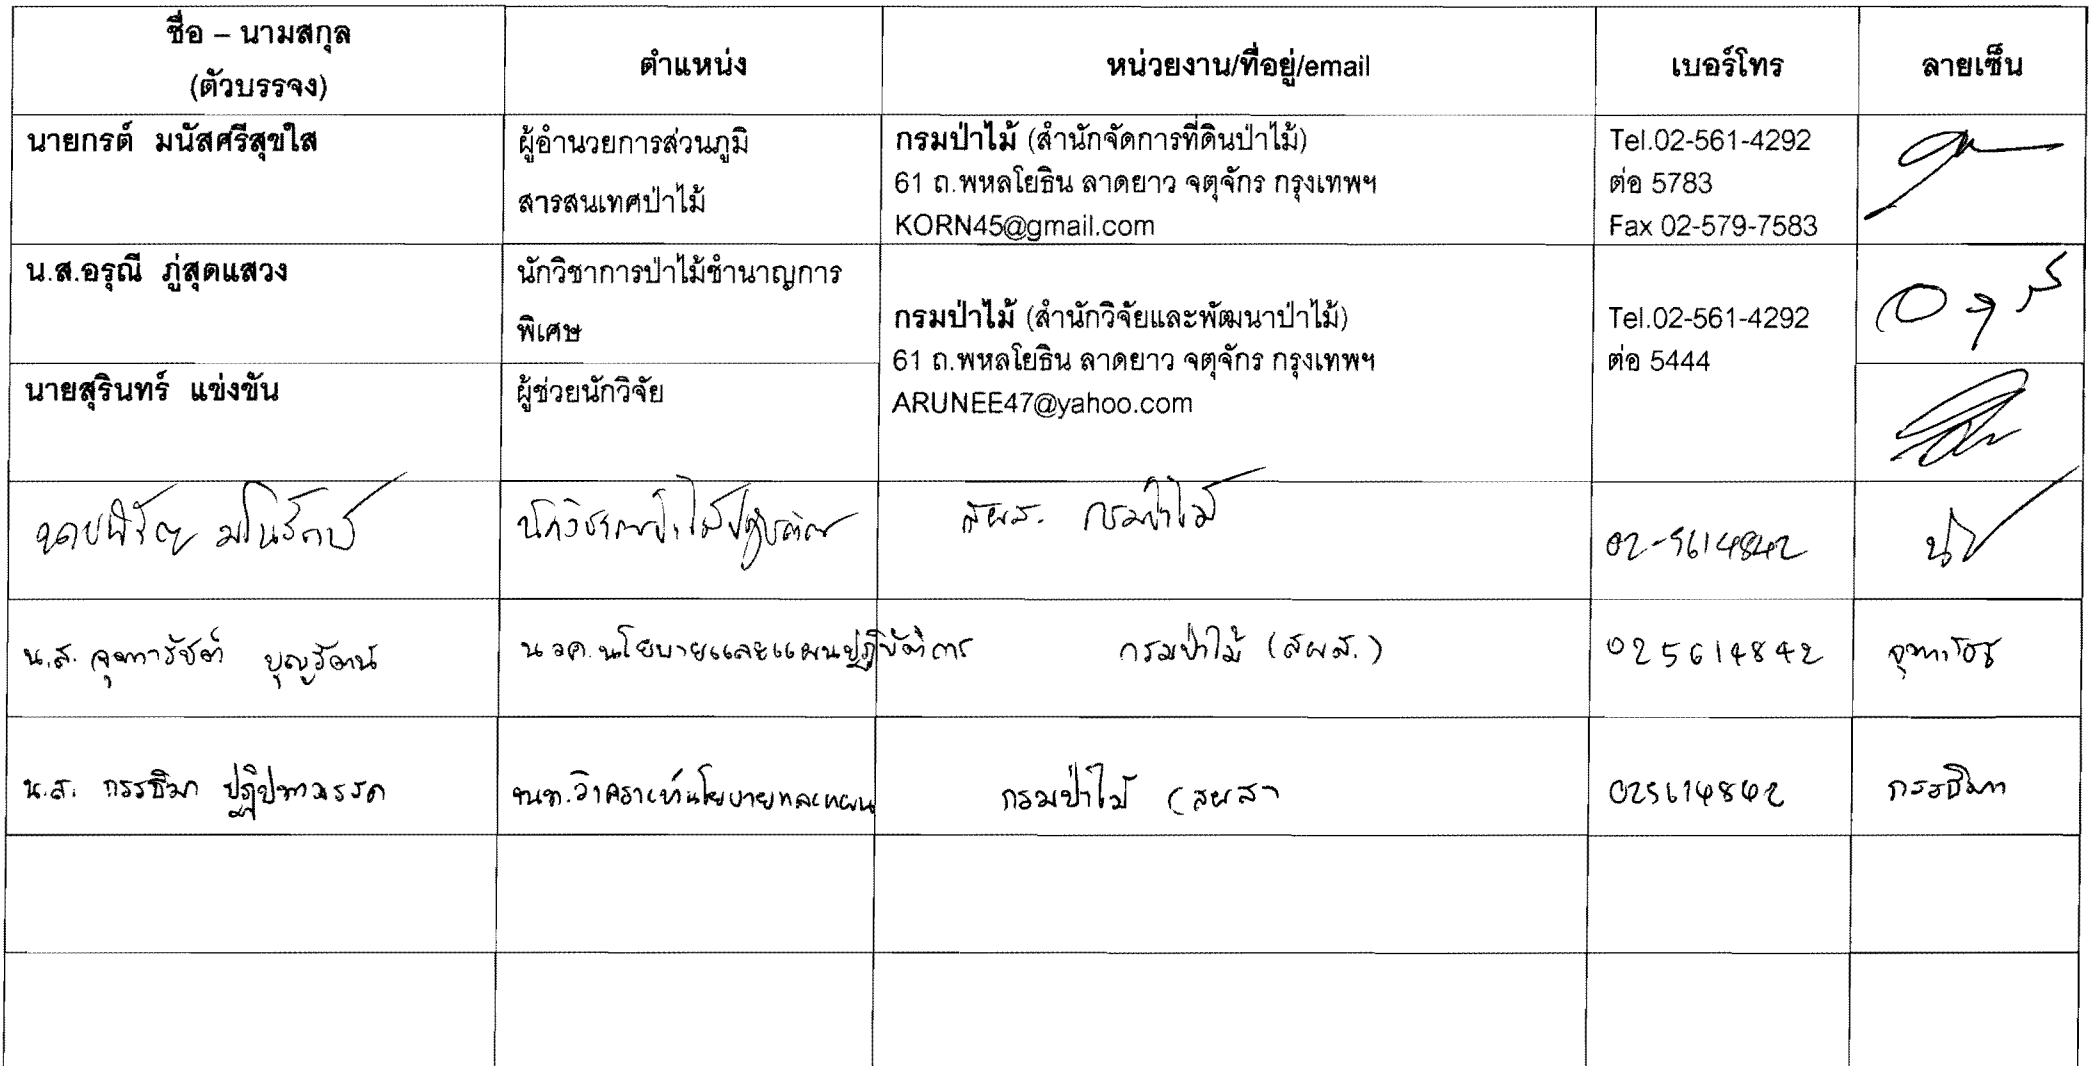 ชื่อ – นามสกุล
(ตัวบรรจง)
ตำแหน่ง
หน่วยงาน/ที่อยู่/email
เบอร์โทร
ลายเซ็น
นายกรต์ มนัสศรีสุขใส
ผู้อำนวยการส่วนภูมิ
สารสนเทศป่าไม้
กรมป่าไม้ (สำนักจัดการที่ดินป่าไม้)
61 ถ.พหลโยธิน ลาดยาว จตุจักร กรุงเทพฯ
KORN45@gmail.com
Tel.02-561-4292
ต่อ 5783
Fax 02-579-7583
น.ส.อรุณี ภู่สุดแสวง
นักวิชาการป่าไม้ชำนาญการ
พิเศษ
กรมป่าไม้ (สำนักวิจัยและพัฒนาป่าไม้)
61 ถ.พหลโยธิน ลาดยาว จตุจักร กรุงเทพฯ
ARUNEE47@yahoo.com
Tel.02-561-4292
ต่อ 5444
นายสุรินทร์ แข่งขัน
ผู้ช่วยนักวิจัย
นักวิชาการป่าไม้ปฏิบัติการ
สผส. กรมป่าไม้
02-5614842
น.ส. บุญรัตน์
นวค.นโยบายและแผนปฏิบัติการ
กรมป่าไม้ (สผส.)
025614842
น.ส.
จนท.วิเคราะห์นโยบายและแผน
กรมป่าไม้ (สผส
025614842